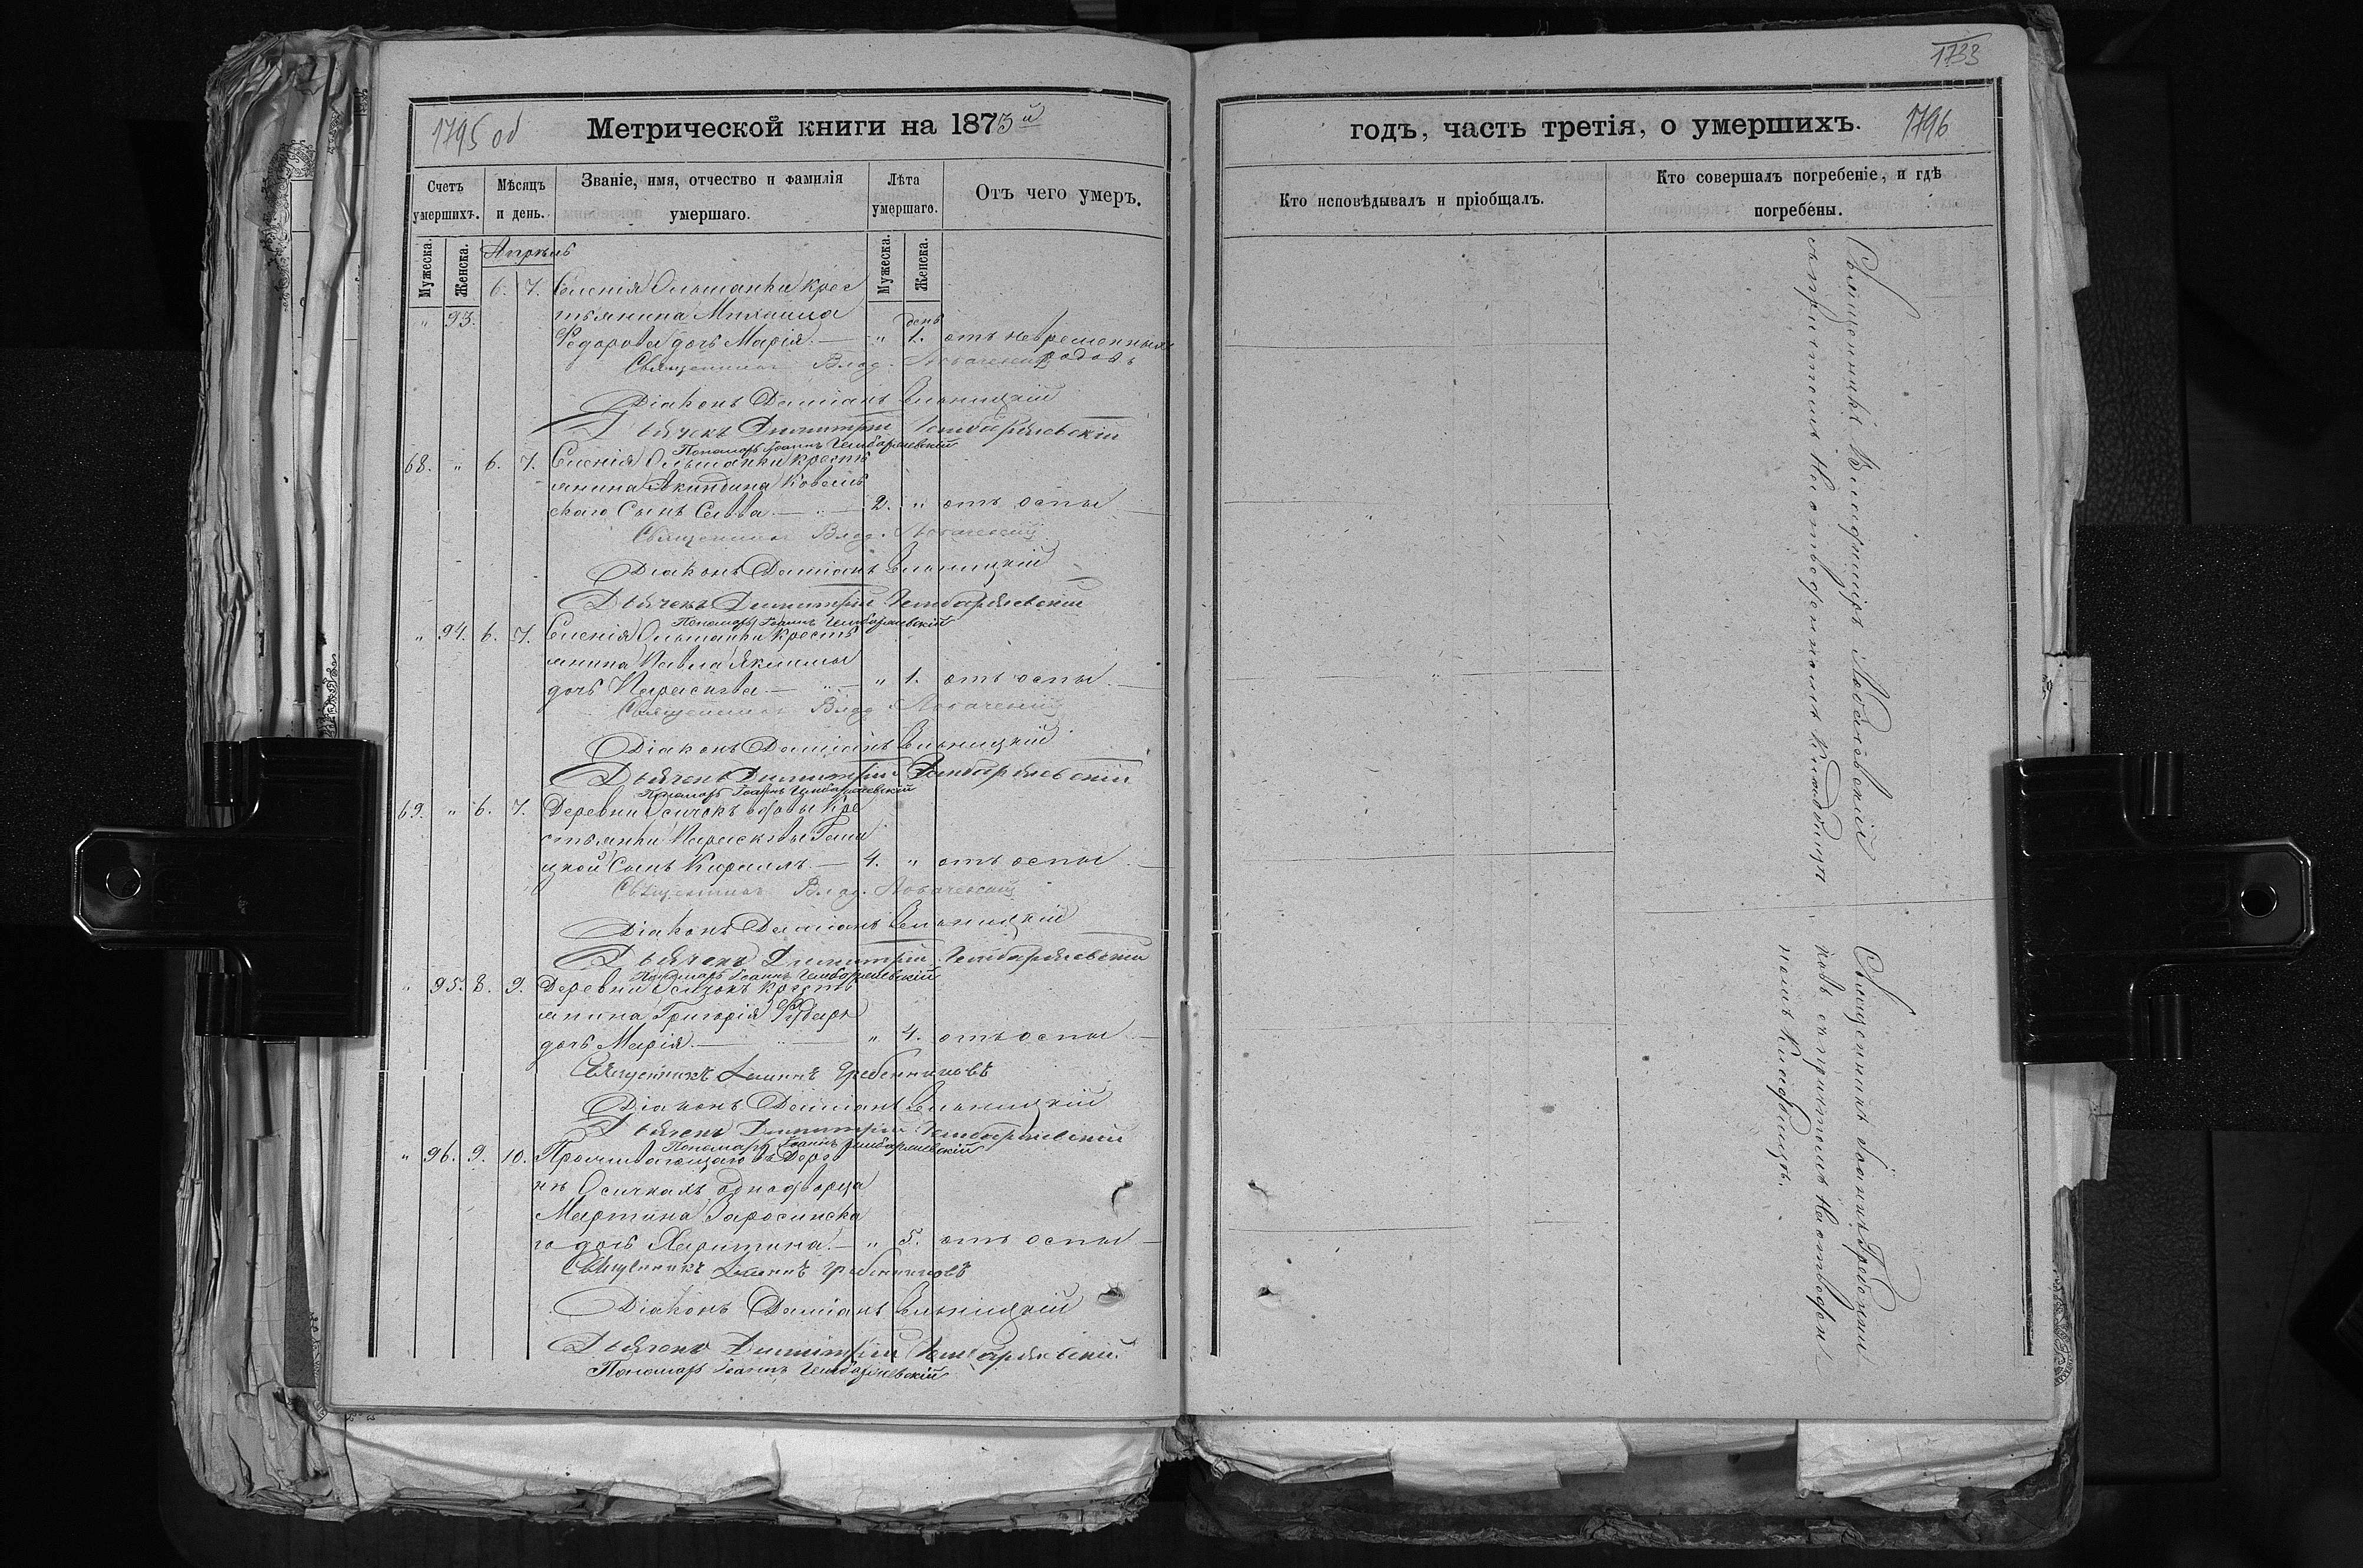 1795 об
Метрической книги на 1873й
Счетъ умершихъ.
Мѣсяцъ и день.
Званіе, имя, отчество и фамилія умершаго.
Лѣта умершаго.
Отъ чего умеръ.
Мужеска.
Женска.
Мужеска.
Женска.
Апрѣль
6. 7. Селенія Ольшанки крес
" 93. тьянина Михаила
день
Федорова дочь Марія. — " 1. отъ невременныхъ
родовъ
Священникъ Влад. Лобачевскій
Діаконъ Даміанъ Вильницкій
Дьячекъ Димитрій Чемберлевскій
Пономарь Іоаннъ Чемберлевскій
68. " 6. 7. Селенія Ольшанки кресть
янина Акиндина Ковель
скаго Сынъ Савва — " — 2. " отъ оспы —
Священникъ Влад. Лобачевскій
Діаконъ Даміанъ Вильницкій
Дьячекъ Димитрій Чемберлевскій
Пономарь Іоаннъ Чемберлевскій
" 94. 6. 7. Селенія Ольшанки кресть
янина Павла Якимы
дочь Параскева — " — " 1. отъ оспы —
Священникъ Влад. Лобачевскій
Діаконъ Даміанъ Вильницкій
Дьячекъ Димитрій Чемберлевскій
Пономарь Іоаннъ Чемберлевскій
69. " 6. 7. Деревни Осичокъ вдовы Кре
стьянки Параскевы
цкой Сынъ Кириллъ — 4. " отъ оспы —
Священникъ Влад. Лобачевскій
Діаконъ Даміанъ Вильницкій
Дьячекъ Димитрій Чемберлевскій
Пономарь Іоаннъ Чемберлевскій
" 95. 8. 9. Деревни Осичокъ кресть
янина Григорія
дочь Марія. — " — " 4. отъ оспы —
Священникъ Іоаннъ Гребенниковъ
Діаконъ Даміанъ Вильницкій
Дьячекъ Димитрій Чемберлевскій
Пономарь Іоаннъ Чемберлевскій
" 96. 9. 10. Проживающаго въ Дерев
нѣ Осичкахъ однодворца
Мартина Заросинска
го дочь Харитина. — " 5. отъ оспы —
Священникъ Іоаннъ Гребенниковъ
Діаконъ Даміанъ Вильницкій
Дьячекъ Димитрій Чемберлевскій
Пономарь Іоаннъ Чемберлевскій
1733
годъ, часть третія, о умершихъ.
1796
Кто исповѣдывалъ и пріобщалъ.
Кто совершалъ погребеніе, и гдѣ погребены.
Священникъ Владиміръ Лобачевскій
съ причтомъ на отведенномъ кладбищѣ
Священникъ Іоаннъ Гребенни
ковъ съ причтомъ на отведен
номъ кладбищѣ.